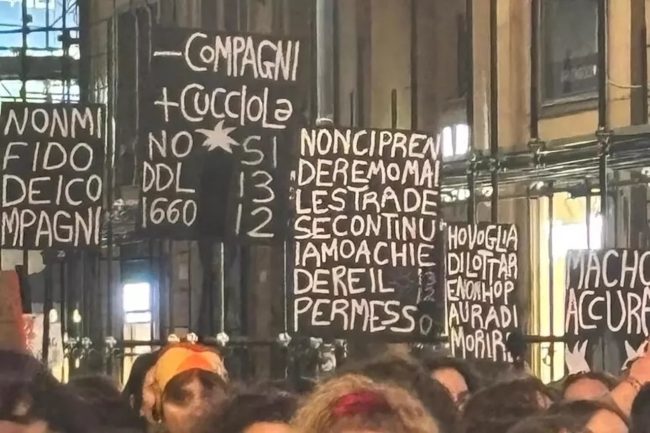 NON MI
FIDO
DEI CO
MPAGNI
–COMPAGNI
+CUCCIOLƏ
NO
DDL
1660
SI
13
12
NON CI PREN
DEREMO MAI
LE STRADE
SE CONTINU
IAMO A CHIE
DERE IL
PERMESSO
HO VOGLIA
DI LOTTAR
E NON HO P
AURA DI
MORIRE
MACHO
ACCURA